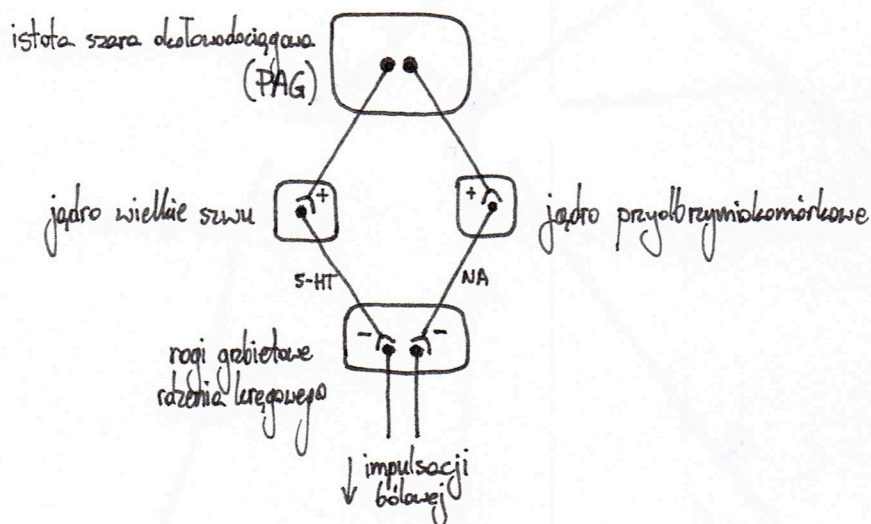 istota szara okołowodociągowa
(PAG)
+
+
jądro wielkie szwu
jądro przyolbrzymiokomórkowe
5-HT
NA
-
-
rogi grzbietowe
rdzenia kręgowego
↓ impulsacji
bólowej